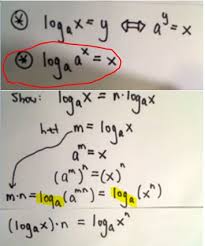 * logₐx = y ⇔ aʸ = x
* logₐaˣ = x
Show: logₐx = n·logₐx
let m = logₐx
aᵐ = x
(aᵐ)ⁿ = (x)ⁿ
m·n = logₐ(aᵐⁿ) = logₐ(xⁿ)
(logₐx)·n = logₐxⁿ